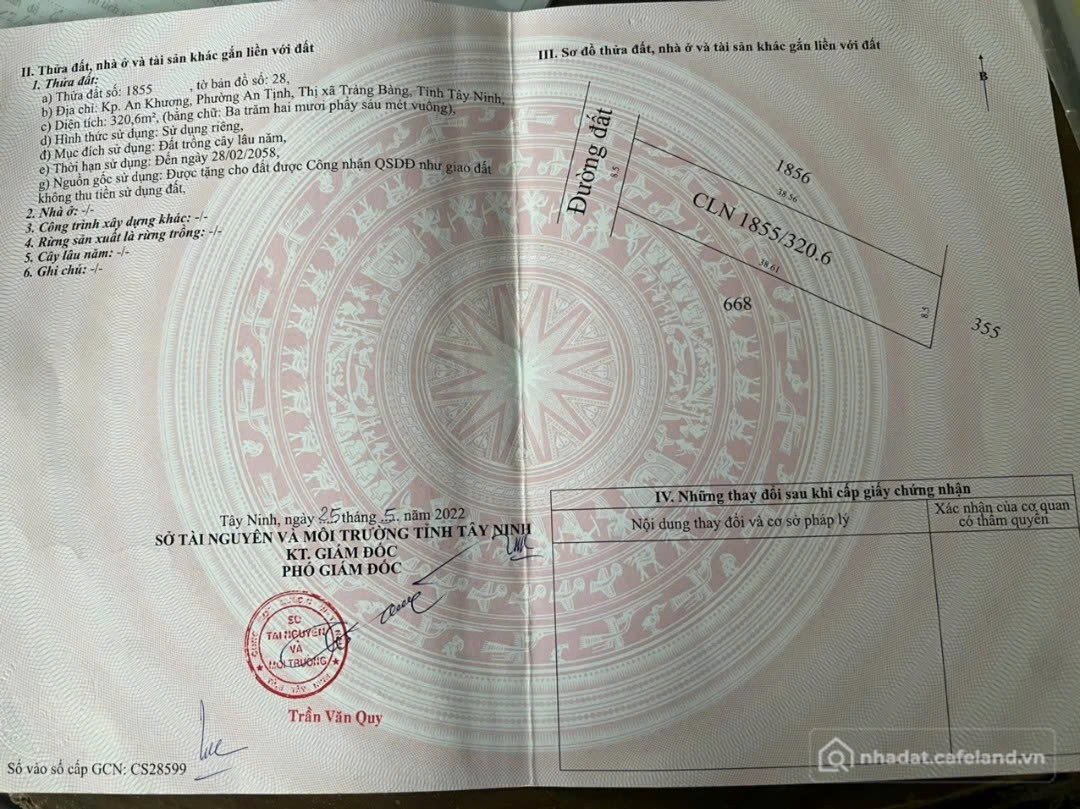 II. Thửa đất, nhà ở và tài sản khác gắn liền với đất
1. Thửa đất:
a) Thửa đất số: 1855 , tờ bản đồ số: 28,
b) Địa chỉ: Kp. An Khương, Phường An Tịnh, Thị xã Trảng Bàng, Tỉnh Tây Ninh,
c) Diện tích: 320,6m², (bằng chữ: Ba trăm hai mươi phẩy sáu mét vuông),
d) Hình thức sử dụng: Sử dụng riêng,
đ) Mục đích sử dụng: Đất trồng cây lâu năm,
e) Thời hạn sử dụng: Đến ngày 28/02/2058,
g) Nguồn gốc sử dụng: Được tặng cho đất được Công nhận QSDĐ như giao đất
không thu tiền sử dụng đất.
2. Nhà ở: -/-
3. Công trình xây dựng khác: -/-
4. Rừng sản xuất là rừng trồng: -/-
5. Cây lâu năm: -/-
6. Ghi chú: -/-
Tây Ninh, ngày 25 tháng 5. năm 2022
SỞ TÀI NGUYÊN VÀ MÔI TRƯỜNG TỈNH TÂY NINH
KT. GIÁM ĐỐC
PHÓ GIÁM ĐỐC
SỞ
TÀI NGUYÊN
VÀ
MÔI TRƯỜNG
Trần Văn Quy
Số vào sổ cấp GCN: CS28599
III. Sơ đồ thửa đất, nhà ở và tài sản khác gắn liền với đất
B
Đường đất
8.5
1856
38.56
CLN 1855/320.6
38.61
668
8.5
355
IV. Những thay đổi sau khi cấp giấy chứng nhận
Nội dung thay đổi và cơ sở pháp lý
Xác nhận của cơ quan
có thẩm quyền
nhadat.cafeland.vn